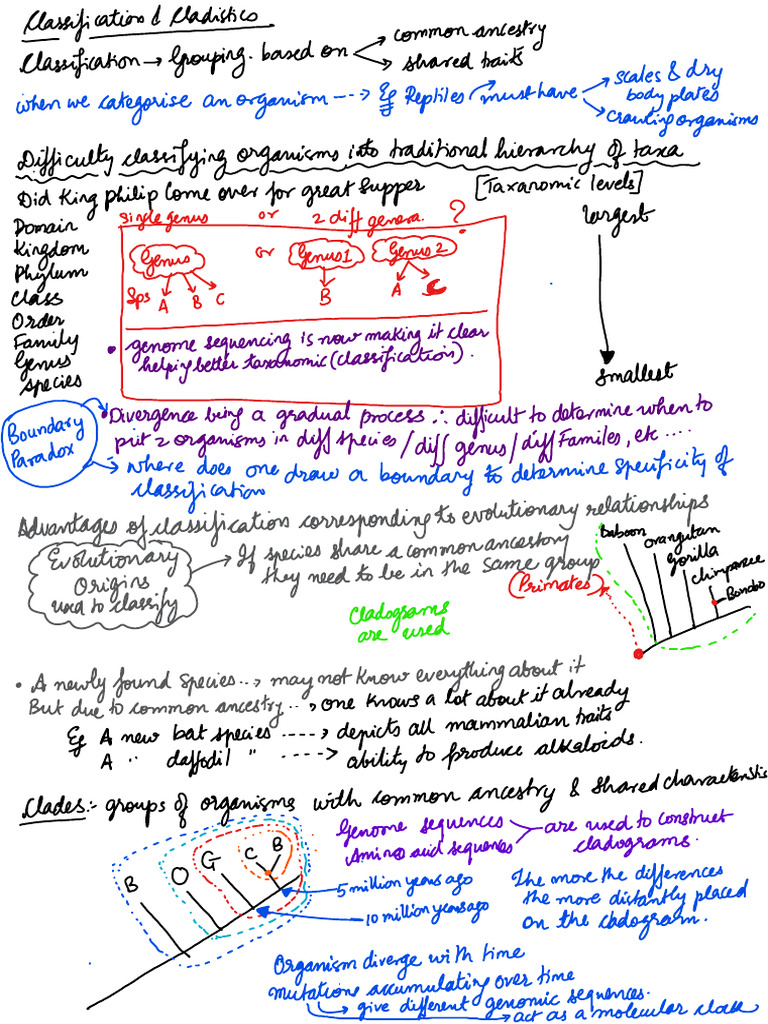 Classification & Cladistics
Classification → Grouping based on → common ancestry
→ shared traits
when we categorise an organism ---→ Eg Reptiles must have → scales & dry body plates
→ crawling organisms
Difficulty classifying organisms into traditional hierarchy of taxa
Did King Philip Come over for great Supper [Taxanomic levels]
Domain
Kingdom
Phylum
Class
Order
Family
Genus
Species
largest
smallest
Single genus or 2 diff genera. ?
Genus or Genus 1 Genus 2
Sps A B C B A C
• genome sequencing is now making it clear
helping better taxanomic (classification).
Boundary Paradox
• Divergence being a gradual process ∴ difficult to determine when to
put 2 organisms in diff species / diff genus / diff Familes, etc ....
→ where does one draw a boundary to determine specificity of
classification
Advantages of classification corresponding to evolutionary relationships
Evolutionary
Origins
used to classify
→ If species share a common ancestory
they need to be in the same group
(Primates)
Cladograms
are used
baboon
orangutan
gorilla
chimpanzee
Bonobo
• A newly found species ..→ may not know everything about it
But due to common ancestry ..→ one knows a lot about it already
Eg A new bat species ----→ depicts all mammalian traits
A " daffodil " ----→ ability to produce alkaloids.
Clades :- groups of organisms with common ancestry & shared characteristics
B O G C B
5 million years ago
10 million years ago
Genome sequences
Amino acid sequences
are used to construct
cladograms.
The more the differences
the more distantly placed
on the cladogram.
Organism diverge with time
mutations accumulating over time
→ give different genomic sequences.
→ act as a molecular clock